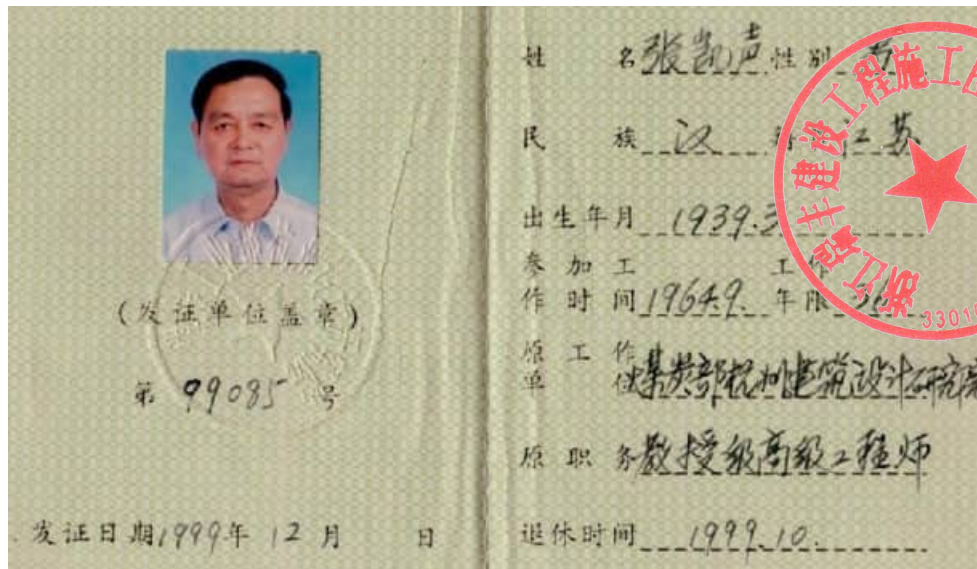 (发证单位盖章)
第 99085 号
发证日期1999年 12月 日
姓 名 张凯声 性别
民 族 汉 江苏
出生年月 1939.3
参加工作时间 1964.9. 工作年限 36
原工作单位 煤炭部杭州建筑设计研究院
原职务 教授级高级工程师
退休时间 1999.10.
浙江瑞丰建设工程施工图
33010